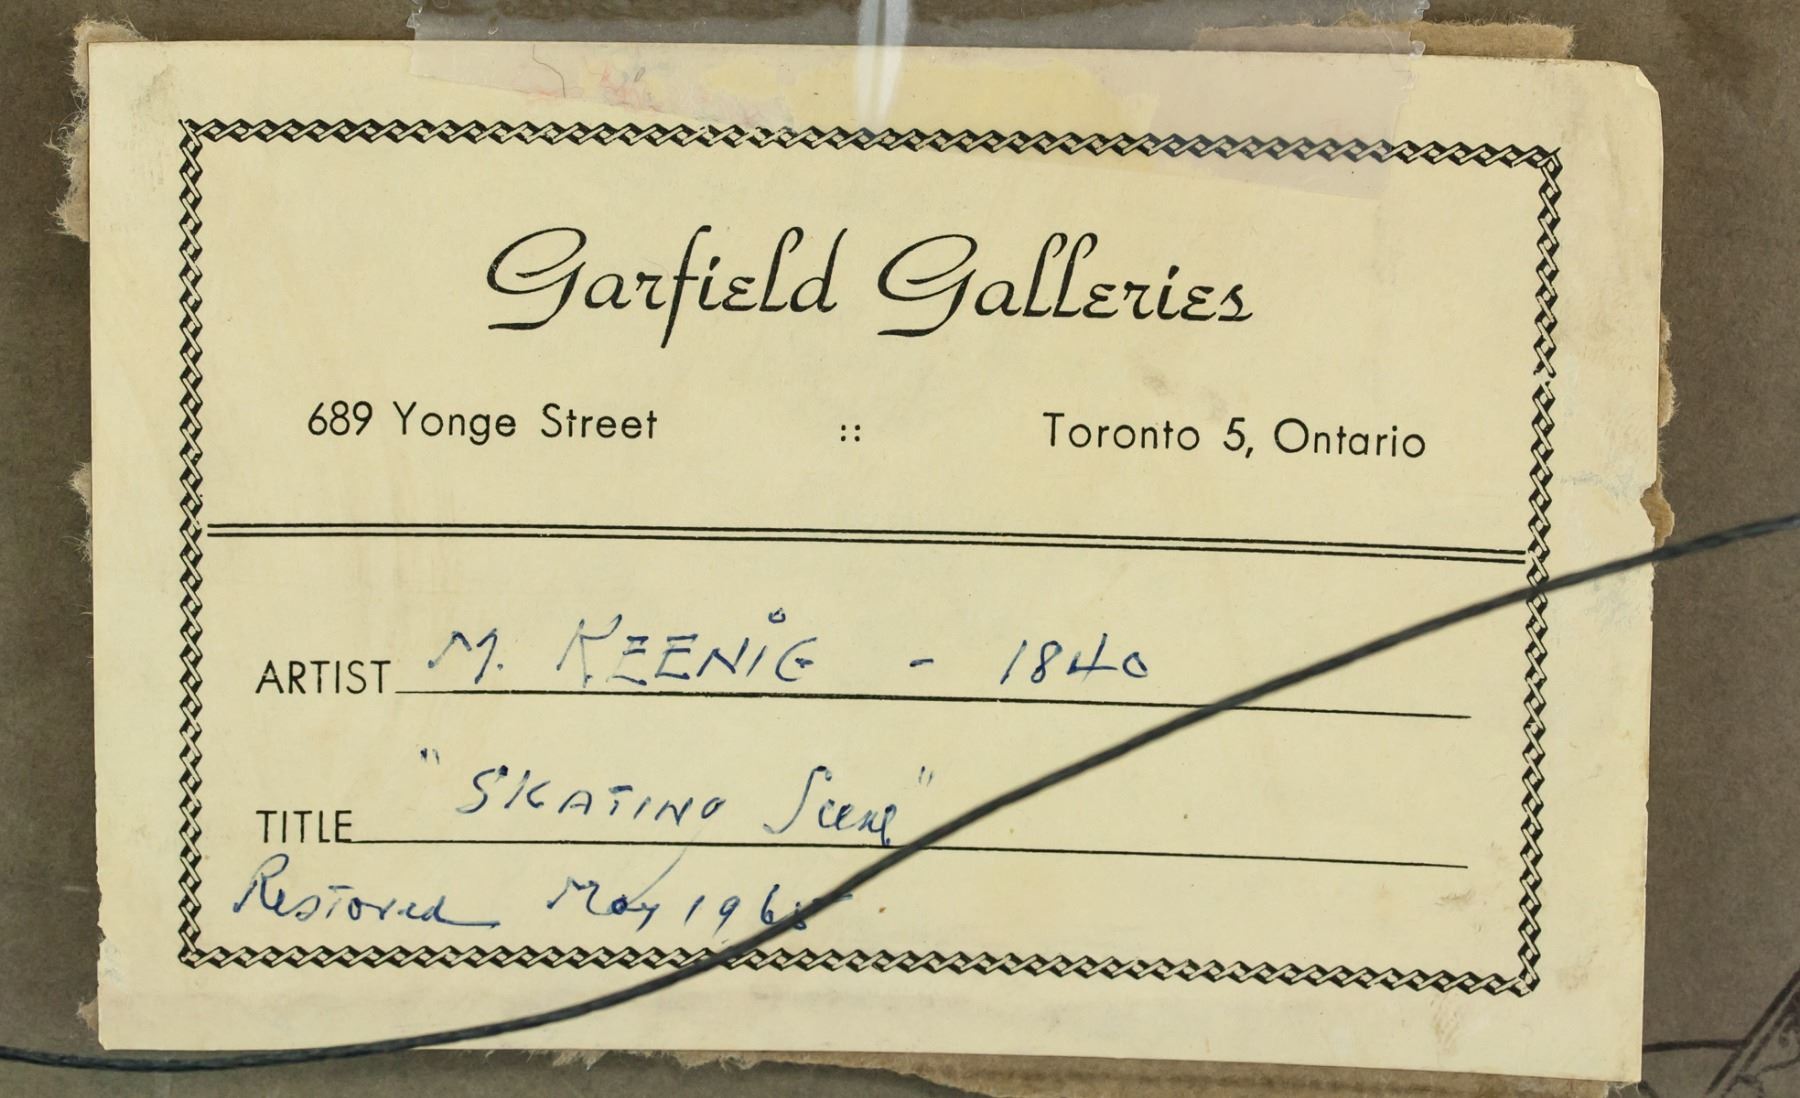 Garfield Galleries
689 Yonge Street :: Toronto 5, Ontario
ARTIST M. KEENiG - 1840
TITLE "SKATING Scene"
Restored May 1965